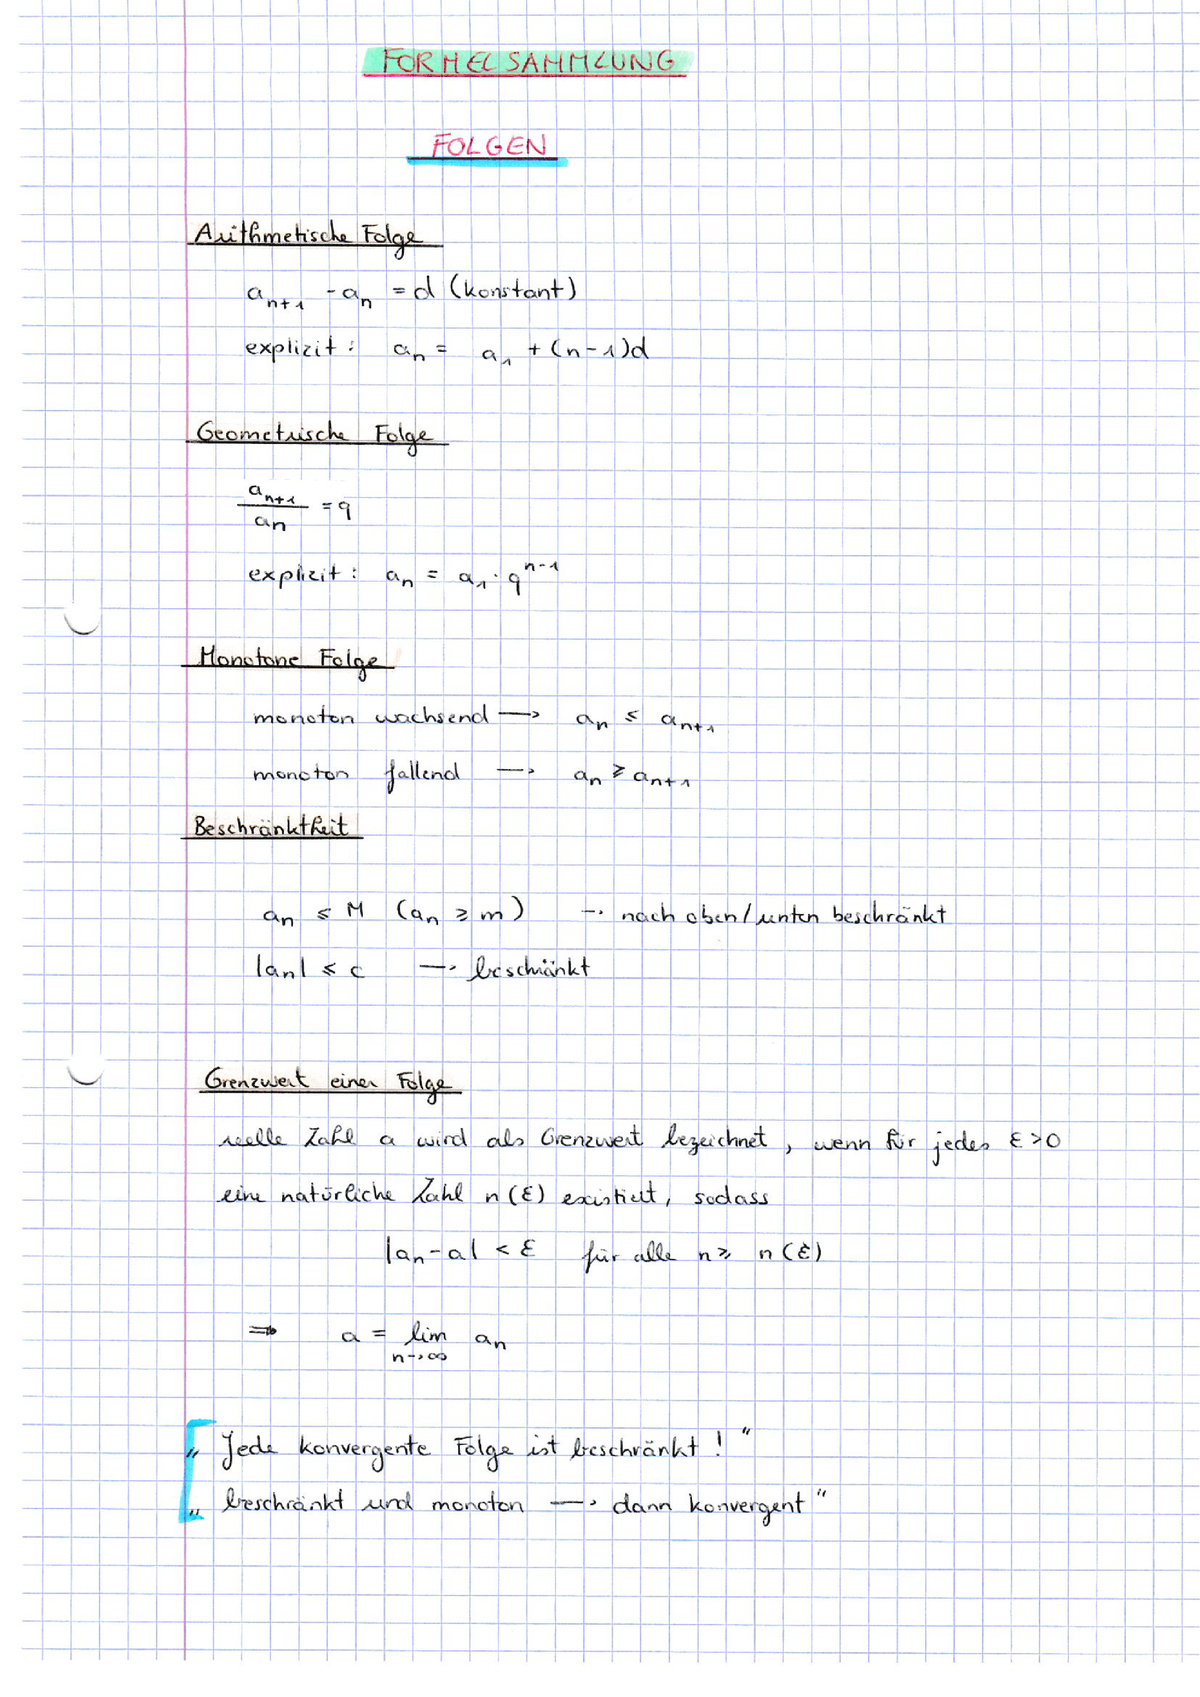 FORMELSAMMLUNG
FOLGEN
Arithmetische Folge
aₙ₊₁ - aₙ = d (konstant)
explizit: aₙ = a₁ + (n-1)d
Geometrische Folge
aₙ₊₁ / aₙ = q
explizit: aₙ = a₁ · qⁿ⁻¹
Monotone Folge
monoton wachsend → aₙ ≤ aₙ₊₁
monoton fallend → aₙ ≥ aₙ₊₁
Beschränktheit
aₙ ≤ M (aₙ ≥ m) → nach oben/unten beschränkt
|aₙ| ≤ c → beschränkt
Grenzwert einer Folge
reelle Zahl a wird als Grenzwert bezeichnet, wenn für jedes ε > 0
eine natürliche Zahl n(ε) existiert, sodass
|aₙ - a| < ε für alle n ≥ n(ε)
⇒ a = lim aₙ
n→∞
„Jede konvergente Folge ist beschränkt!“
„beschränkt und monoton → dann konvergent“